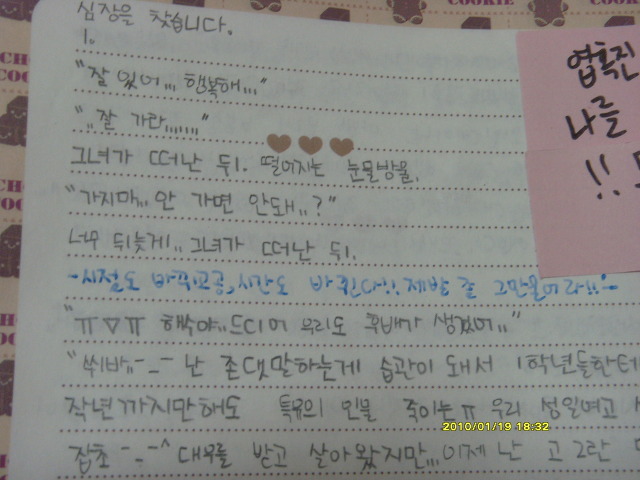 심장을 찾습니다.
1.
"잘 있어,,, 행복해,,,"
",,잘 가라,,,,,,"
그녀가 떠난 뒤. 떨어지는 눈물방울.
"가지마,, 안 가면 안돼,,?"
너무 뒤늦게,, 그녀가 떠난 뒤.
-시절도 바뀌고 시간도 바뀐다!! 제발 좀 그만울어라!!-
"ㅠ▽ㅠ 해수야,,드디어 우리도 후배가 생겼어,,"
"쒸바,,-_-난 존댓말하는게 습관이 돼서 1학년들한테
작년까지만해도 특유의 인물 죽이는ㅠ 우리 성일여고
잡초-_-^ 대우를 받고 살아왔지만,,,이제 난 고2란
엽혹진
나를
!!
2010/01/19 18:32
CHO
COOKIE